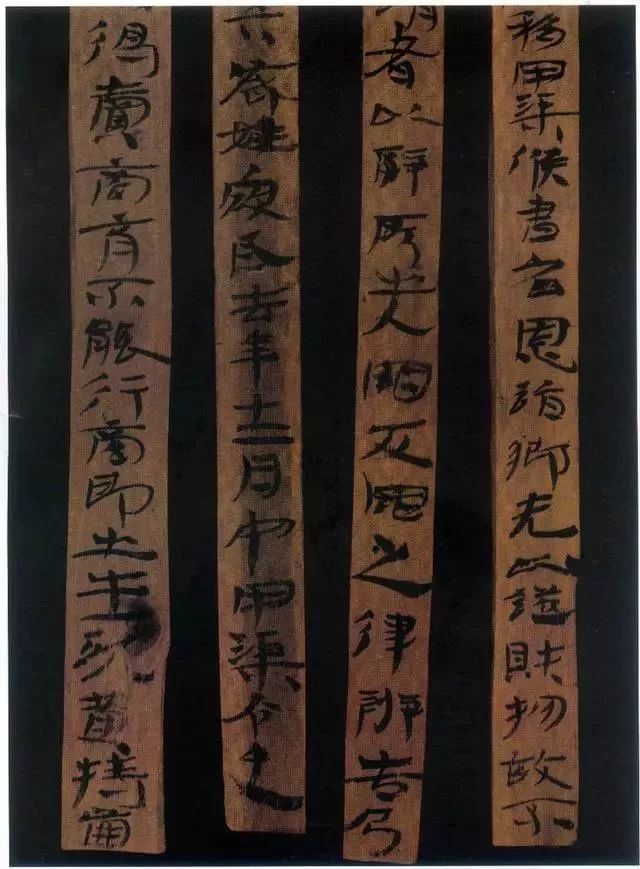 移甲渠候書召恩詣鄉先以證財物故不
請者以辭所出入罪反罪之律辨告乃
六歲姓寇氏去年十二月中甲渠令史
得賣商育不能行商即出牛一頭黃特齒